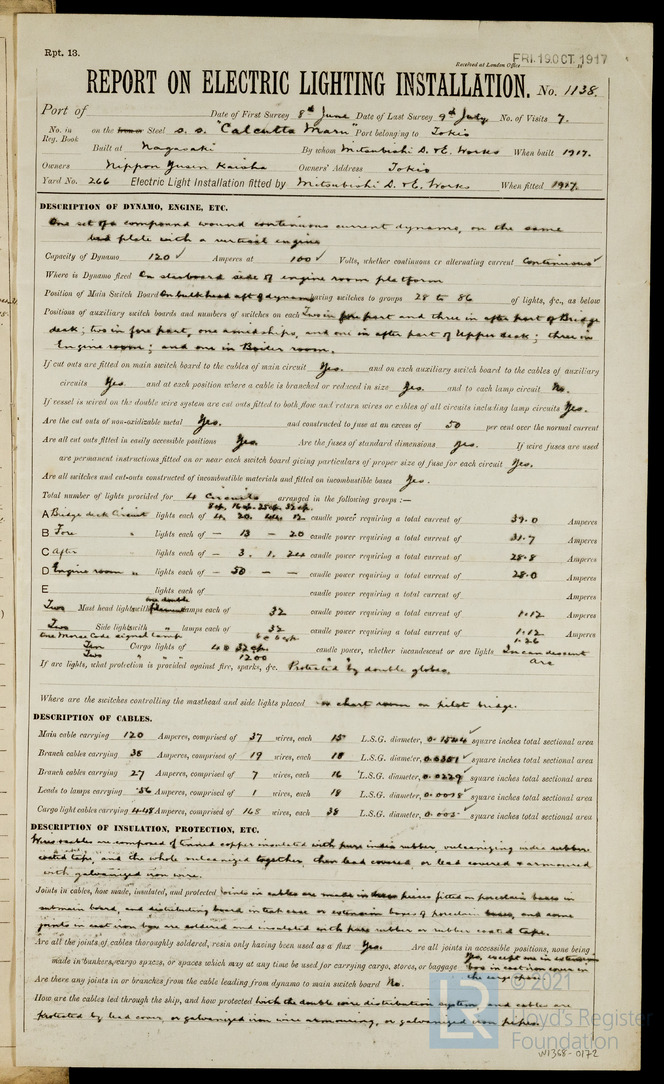 Rpt. 13.
Received at London Office FRI. 19 OCT. 1917
REPORT ON ELECTRIC LIGHTING INSTALLATION. No. 1138.
Port of Date of First Survey 8th June Date of Last Survey 9th July No. of Visits 7.
No. in Reg. Book on the Iron or Steel s.s. "Calcutta Maru" Port belonging to Tokio
Built at Nagasaki By whom Mitsubishi D. & E. Works When built 1917.
Owners Nippon Yusen Kaisha Owners' Address Tokio
Yard No. 266 Electric Light Installation fitted by Mitsubishi D. & E. Works When fitted 1917.
DESCRIPTION OF DYNAMO, ENGINE, ETC.
One set of a compound wound continuous current dynamo, on the same
bed plate with a vertical engine
Capacity of Dynamo 120 Amperes at 100 Volts, whether continuous or alternating current Continuous
Where is Dynamo fixed On starboard side of engine room platform
Position of Main Switch Board On bulkhead aft of dynamo having switches to groups 28 to 86 of lights, &c., as below
Positions of auxiliary switch boards and numbers of switches on each Two in fore part and three in after part of Bridge
deck; two in fore part, one amidships, and one in after part of Upper deck; three in
Engine room; and one in Boiler room.
If cut outs are fitted on main switch board to the cables of main circuit Yes. and on each auxiliary switch board to the cables of auxiliary
circuits Yes. and at each position where a cable is branched or reduced in size Yes. and to each lamp circuit No.
If vessel is wired on the double wire system are cut outs fitted to both flow and return wires or cables of all circuits including lamp circuits Yes.
Are the cut outs of non-oxidizable metal Yes. and constructed to fuse at an excess of 50 per cent over the normal current
Are all cut outs fitted in easily accessible positions Yes. Are the fuses of standard dimensions Yes. If wire fuses are used
are permanent instructions fitted on or near each switch board giving particulars of proper size of fuse for each circuit Yes.
Are all switches and cut-outs constructed of incombustible materials and fitted on incombustible bases Yes.
Total number of lights provided for 4 Circuits arranged in the following groups :—
8cp. 16cp. 25cp. 32cp.
A Bridge deck Circuit lights each of 4 20 12 candle power requiring a total current of 39.0 Amperes
B Fore " lights each of — 13 — 20 candle power requiring a total current of 31.7 Amperes
C After " lights each of — 3. 1. 24 candle power requiring a total current of 28.8 Amperes
D Engine room " lights each of — 50 — — candle power requiring a total current of 28.0 Amperes
E lights each of candle power requiring a total current of Amperes
Two Mast head lights with one double filament lamps each of 32 candle power requiring a total current of 1.12 Amperes
Two Side lights with " lamps each of 32 candle power requiring a total current of 1.12 Amperes
One Morse Code signal lamp 60 cp. 1.26
Two Cargo lights of 32 cp. candle power, whether incandescent or arc lights Incandescent
Two " " " 1200 " arc
If arc lights, what protection is provided against fire, sparks, &c. Protected by double globes.
Where are the switches controlling the masthead and side lights placed In chart room on pilot bridge.
DESCRIPTION OF CABLES.
Main cable carrying 120 Amperes, comprised of 37 wires, each 15 L.S.G. diameter, 0.1504 square inches total sectional area
Branch cables carrying 38 Amperes, comprised of 19 wires, each 18 L.S.G. diameter, 0.0351 square inches total sectional area
Branch cables carrying 27 Amperes, comprised of 7 wires, each 16 L.S.G. diameter, 0.0229 square inches total sectional area
Leads to lamps carrying .56 Amperes, comprised of 1 wires, each 18 L.S.G. diameter, 0.0018 square inches total sectional area
Cargo light cables carrying 4.48 Amperes, comprised of 168 wires, each 38 L.S.G. diameter, 0.005 square inches total sectional area
DESCRIPTION OF INSULATION, PROTECTION, ETC.
Wires & cables are composed of tinned copper insulated with pure india rubber, vulcanizing india rubber
coated tape, and the whole vulcanized together, then lead covered or lead covered & armoured
with galvanized iron wire.
Joints in cables, how made, insulated, and protected Joints in cables are made in pieces fitted on porcelain bases in
submain board, and distributing board in teak case or extension boxes of porcelain bases, and some
joints in cast iron box are soldered and insulated with pure rubber or rubber coated tape.
Are all the joints of cables thoroughly soldered, resin only having been used as a flux Yes. Are all joints in accessible positions, none being
made in bunkers, cargo spaces, or spaces which may at any time be used for carrying cargo, stores, or baggage Yes, except one in extension
box in cast iron cover in
the cargo space.
Are there any joints in or branches from the cable leading from dynamo to main switch board No.
How are the cables led through the ship, and how protected With the double wire distribution system, and cables are
protected by lead cover, or galvanized iron wire armouring, or galvanized iron pipes.
© 2021
Lloyd's Register
Foundation
LR
W1368-0172